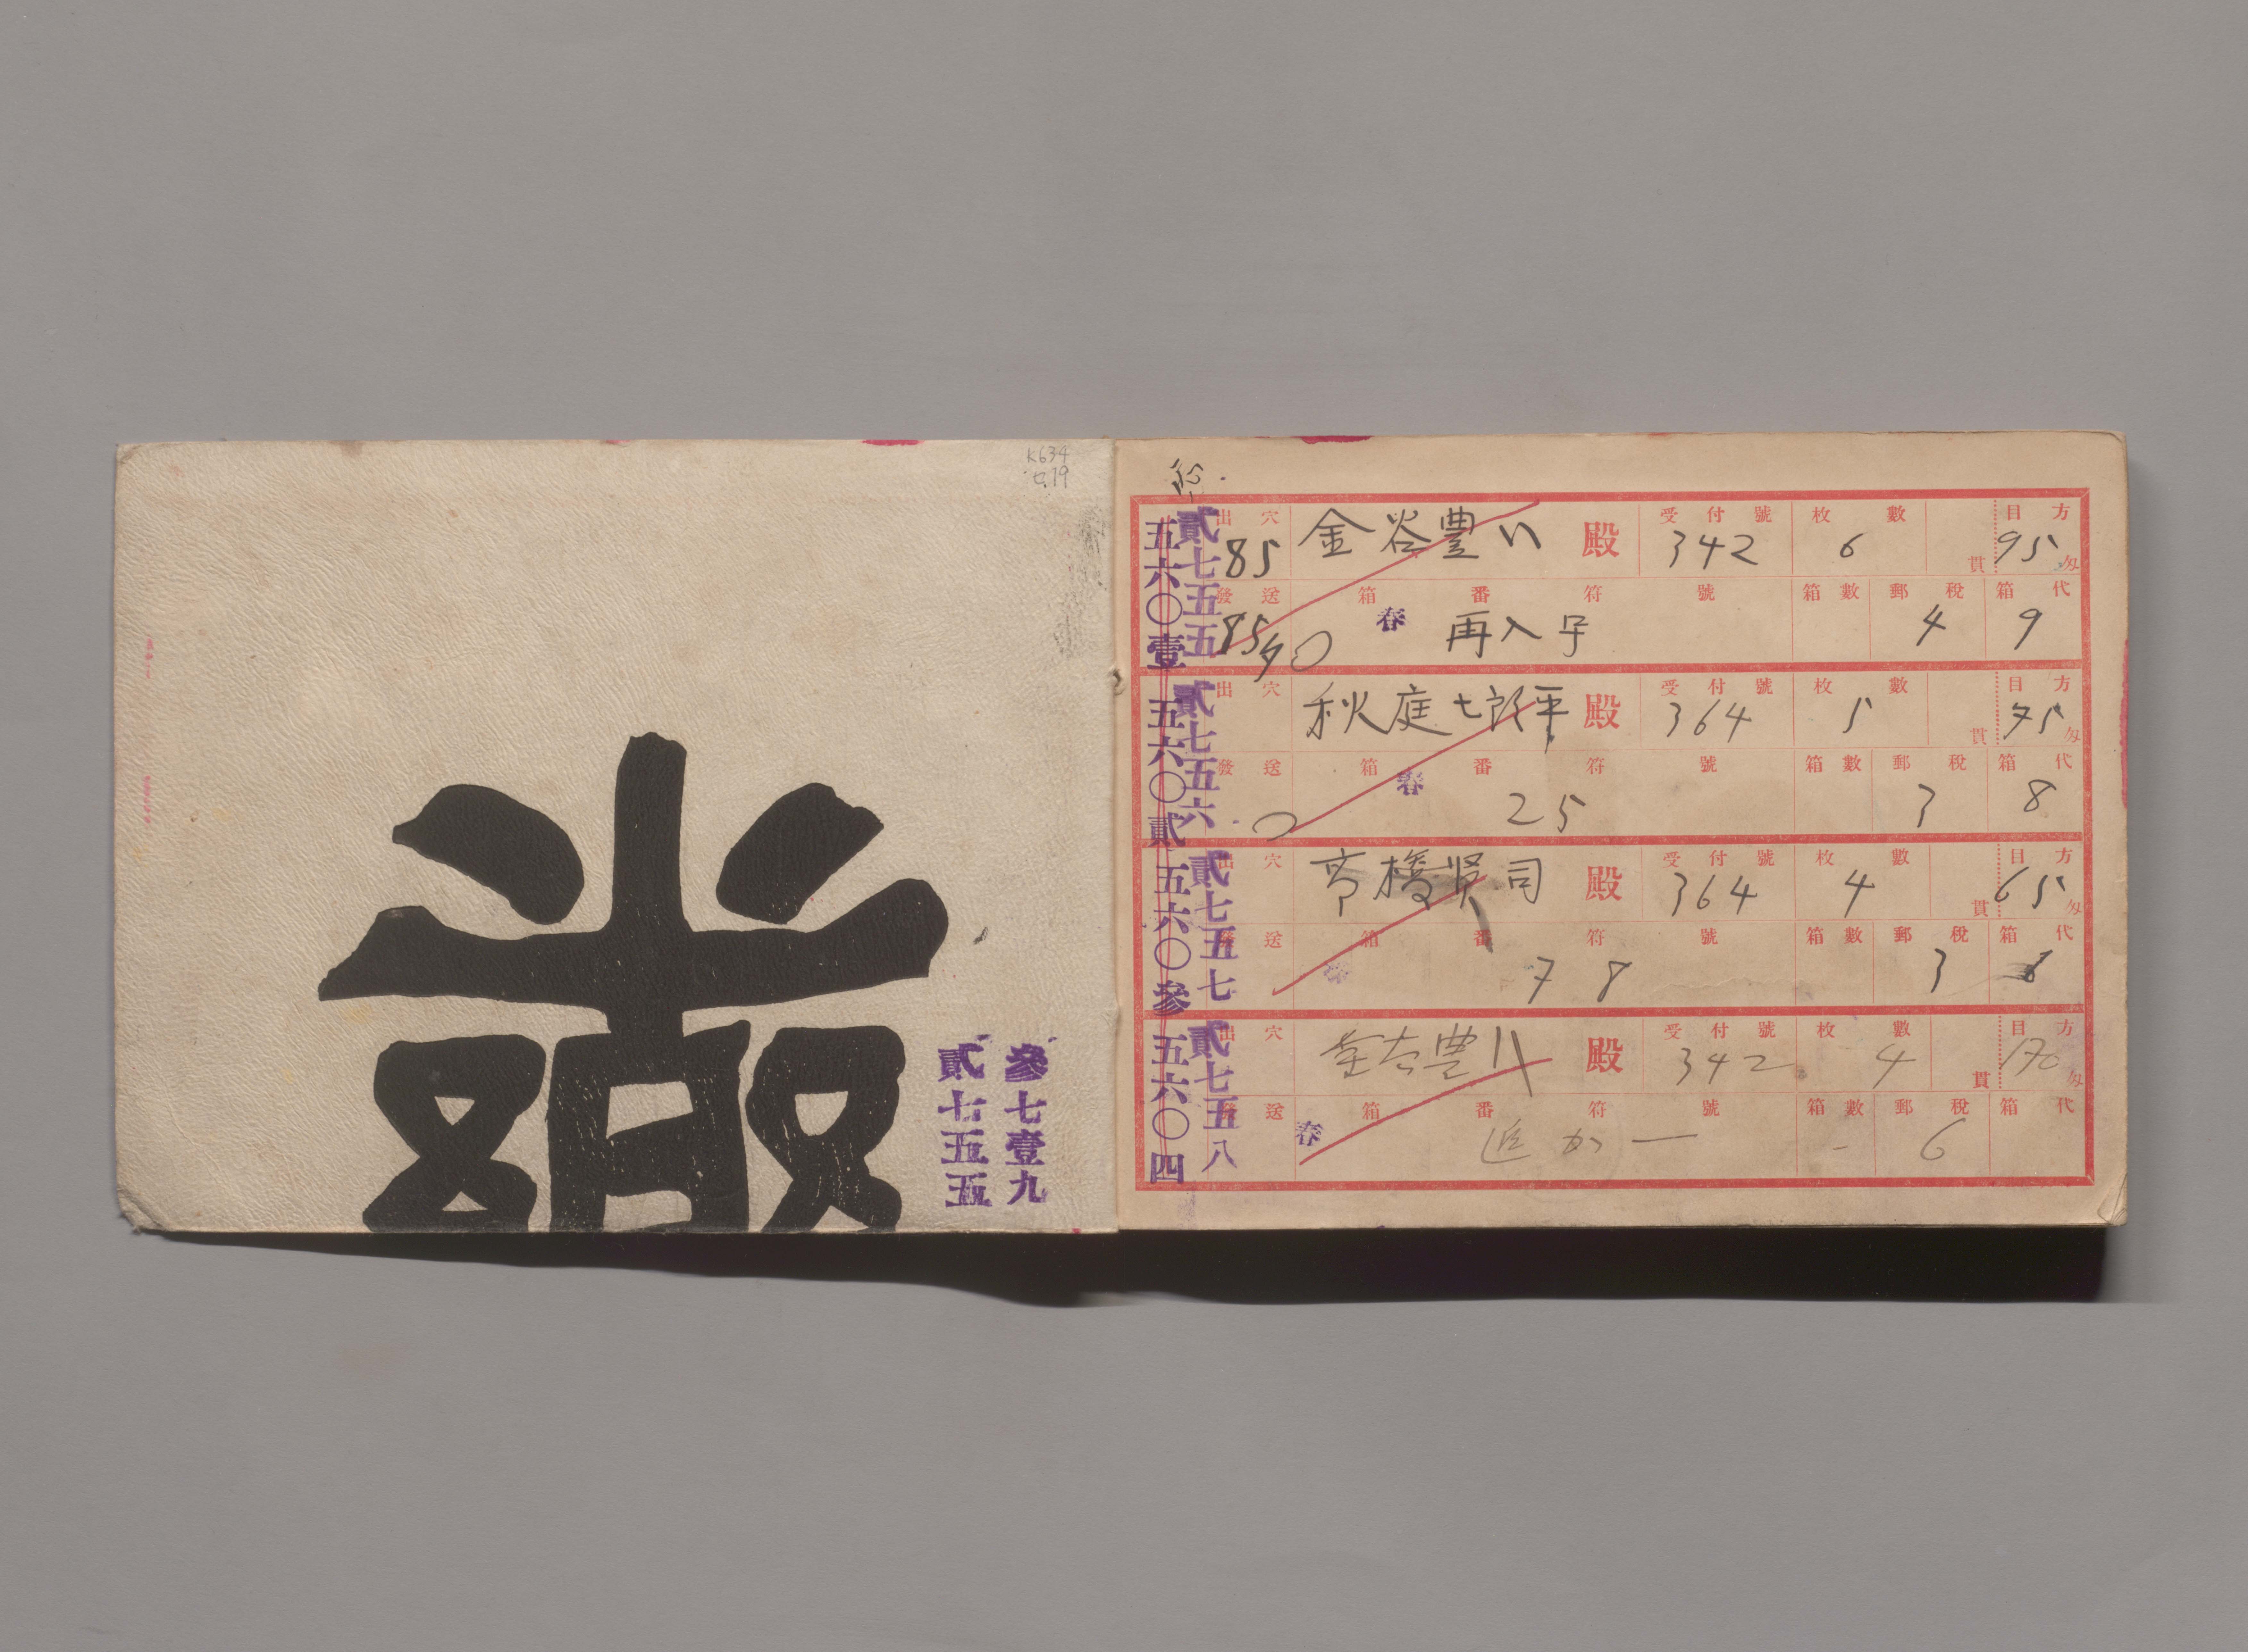 K634
C.19
參七壹九
貳七五五
五六〇壹
貳七五五
出穴 85
金谷豊八 殿
受付號 342
枚數 6
目方 貫 95 匁
發送 85
箱番符號 春 再入字
箱數
郵稅 4
箱代 9
五六〇貳
貳七五六
出穴
秋庭七郎平 殿
受付號 364
枚數 5
目方 貫 75 匁
發送
箱番符號 春 25
箱數
郵稅 3
箱代 8
五六〇參
貳七五七
出穴
高橋賢司 殿
受付號 364
枚數 4
目方 貫 65 匁
發送
箱番符號 春 78
箱數
郵稅 3
箱代
五六〇四
貳七五八
出穴
豊八 殿
受付號 342
枚數 4
目方 貫 170 匁
發送
箱番符號 春 追カ一
箱數 -
郵稅 6
箱代